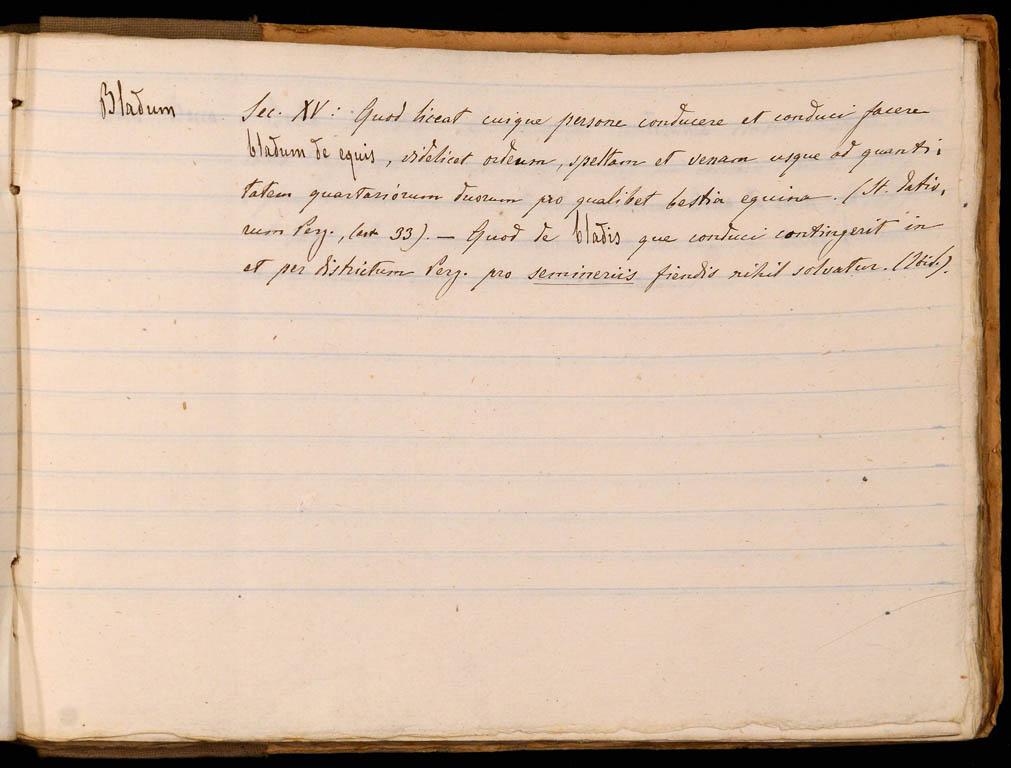 Bladum Sec. XV: Quod liceat cuique persone conducere et conduci facere
bladum de equis, videlicet ordeum, speltam et venam usque ad quanti-
tatem quartariorum duorum pro qualibet bestia equina. (St. Datio-
rum Perg., car 33). — Quod de bladis que conduci contingerit in
et per districtum Perg. pro semineriis fiendis nihil solvatur. (Ibid.).